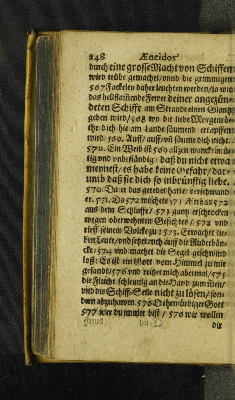 248 Æneidos
durch eine grosse Macht von Schiffen
wird trübe gemachet/vnnd die grimmigen
567 Fackelen daher leuchten werden/ja wie
das hellflammende Fewer deiner angezün-
deten Schiffe am Strande einen Glantz
geben wird/568 wo die liebe Morgenrö-
the dich hie am Lande säumend ertapffen
wird. 569. Auff/auff/vñ säume dich nicht.
570. Ein Weib ist 569 allzeit wanckmü-
tig vnd vnbeständig: daß du nicht etwa
meynest/es habe keine Gefahr/dar-
umb daß sie dich so inbrünstig liebe.
570. Da er das geredet hatte/ verschwand
er. 571. Da 572 wüschete 571 Æneas 572
aus dem Schlaffe/571 gantz erschrocken
wegen oberwehnten Gesichtes/572 vnd
rieff seinem Volcke zu: 573. Erwachet lie-
ben Leute/vnd setzet euch auff die Ruderbän-
cke/574 vnd machet die Segel geschwind
loß: Es ist ein Gott vom Himmel zu mir
gesandt/576 vnd reitzet mich abermal/575
die Flucht schleunig an die Hand zu nehmen/
vnd die Schiff-Seile nicht zu lösen/son-
dern abzuhawen. 576 O ehrwürdiger Gott
577 wer du immer bist/576 wir wollen
dir